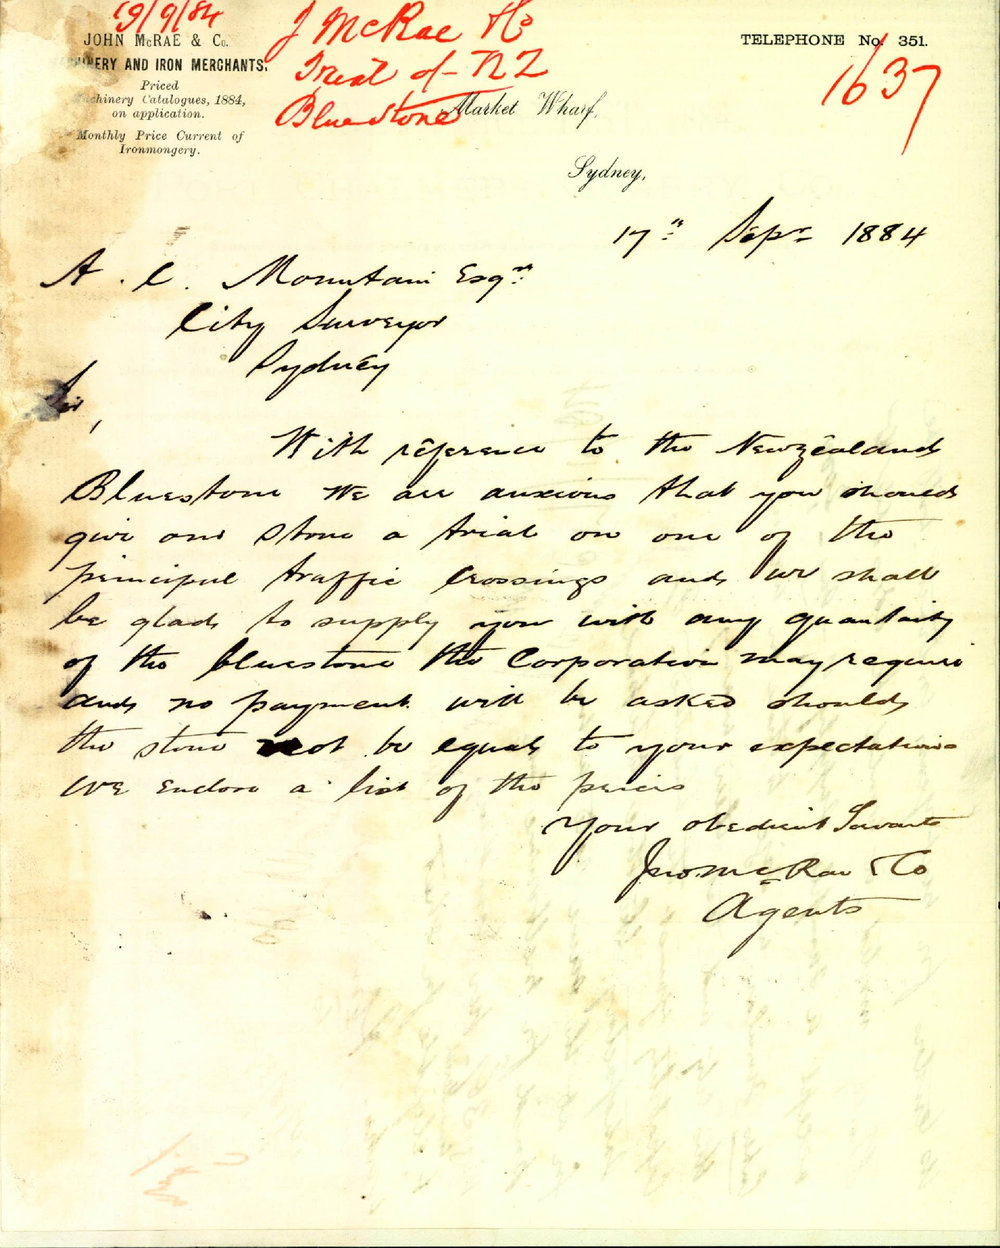 19/9/84
J McRae & Co
Treat of NZ
Bluestone
1637
JOHN McRAE & Co.
MACHINERY AND IRON MERCHANTS.
Priced
Machinery Catalogues, 1884,
on application.
Monthly Price Current of
Ironmongery.
TELEPHONE No. 351.
Market Wharf,
Sydney,
17th Sepr 1884
A. C. Mountain Esqre
City Surveyor
Sydney
Sir,
With reference to the Newzealand
Bluestone we are anxious that you should
give our stone a trial on one of the
principal traffic crossings and we shall
be glad to supply you with any quantity
of the bluestone the Corporation may require
and no payment will be asked should
the stone not be equal to your expectations
We enclose a list of the prices
Your obedient Servants
Jno McRae & Co
Agents